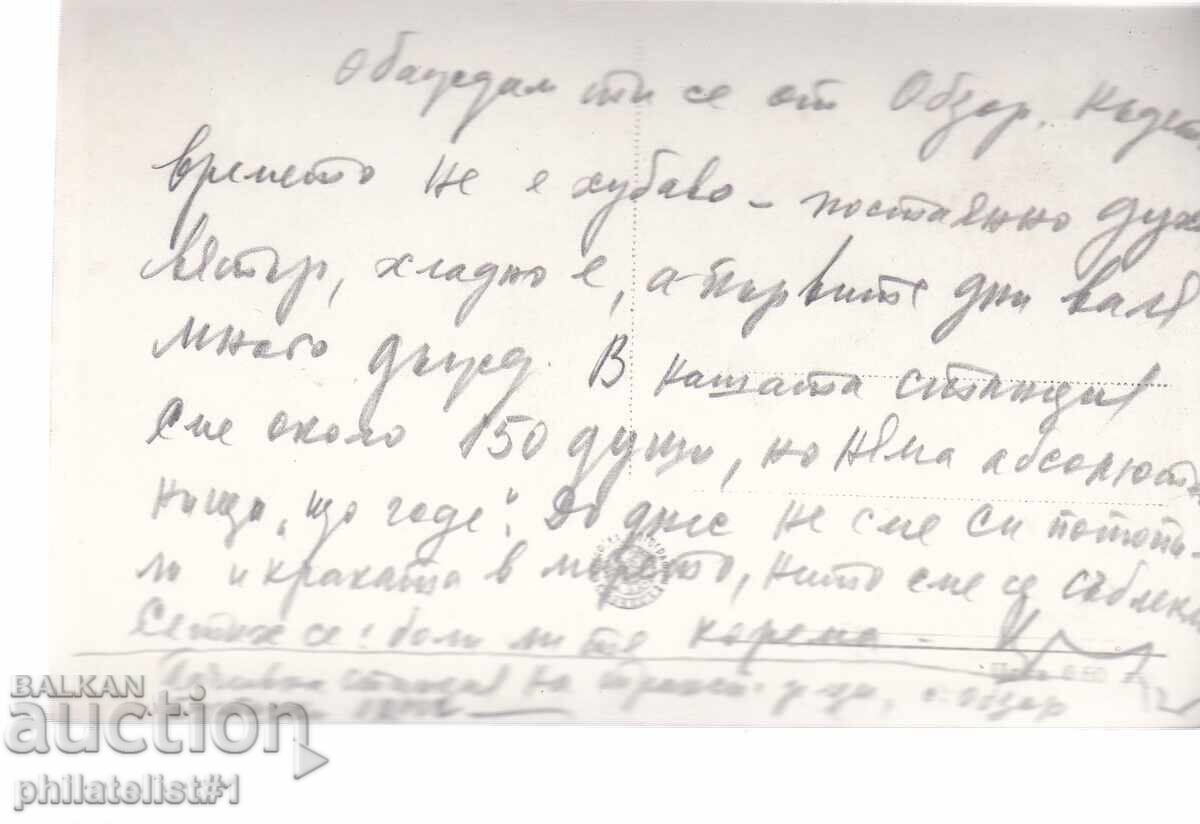 Обаждам ти се от Обзор, където
времето не е хубаво – постоянно духа
вятър, хладно е, а първите дни валя
много дъжд. В нашата станция
сме около 150 души, но няма абсолютно
нищо „що годе“. До днес не сме си потопи-
ли и краката в морето, нито сме се съблекли
Сетих се! боли ли те корема
станция на с. Обзор
BALKAN
auction
philatelist#1